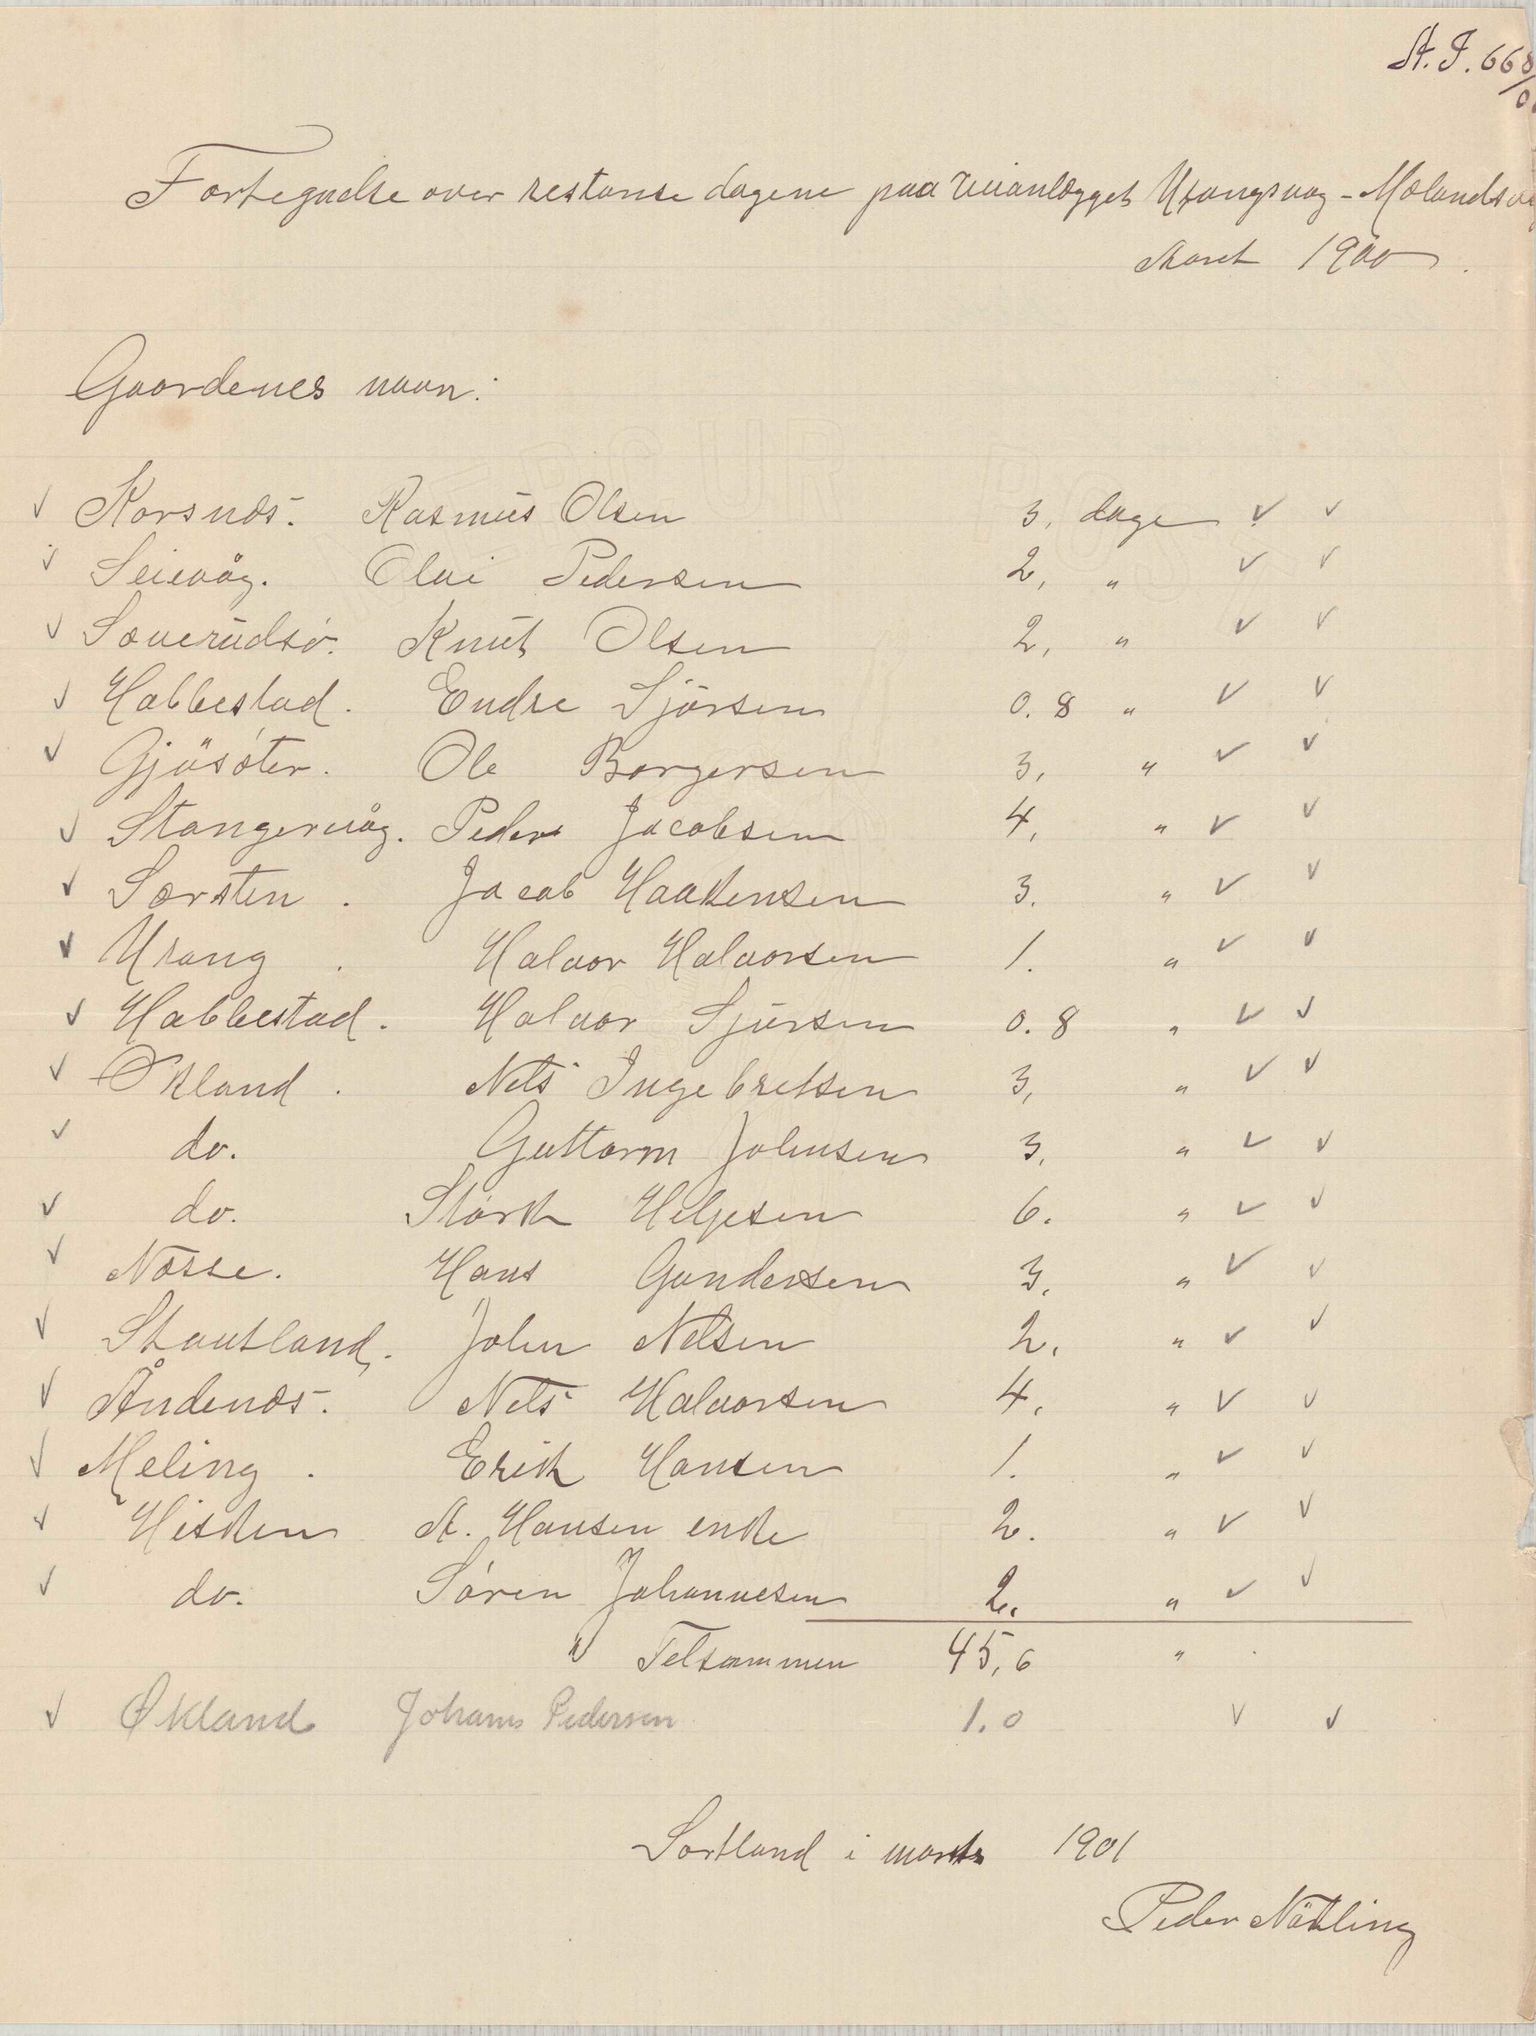 A. J. 668
Fortegnelse over restanse dagene paa veianlægget Urangsvag - Mælands
Aaret 1900.
Gaardenes navn:
Korsnæs. Rasmus Olsen 3, dage
Seievåg. Olai Pedersen 2, "
Knut Olsen 2, "
Habbestad. Endre Sjørsen 0.8 "
Gjøsæter. Ole Borgersen 3, "
Stangervåg. Peder Jacobsen 4, "
Særsten. Jacob Haakensen 3. "
Urang. Halvor Halvorsen 1. "
Habbestad. Halvor Sjursen 0.8 "
Økland. Nels Ingebretsen 3, "
do. Guttorm Johnsen 3, "
do. Størk Helgesen 6. "
Næsse. Hans Gundersen 3, "
Stautland. John Nelsen 2, "
Åndenæs. Nels Halvorsen 4, "
Meling. Erik Hansen 1. "
Hisken A. Hansen enke 2. "
do. Søren Johannesen 2. "
" Telsammen 45,6 "
Økland Johans Pedersen 1.0
Sortland i marts 1901
Peder Nökling